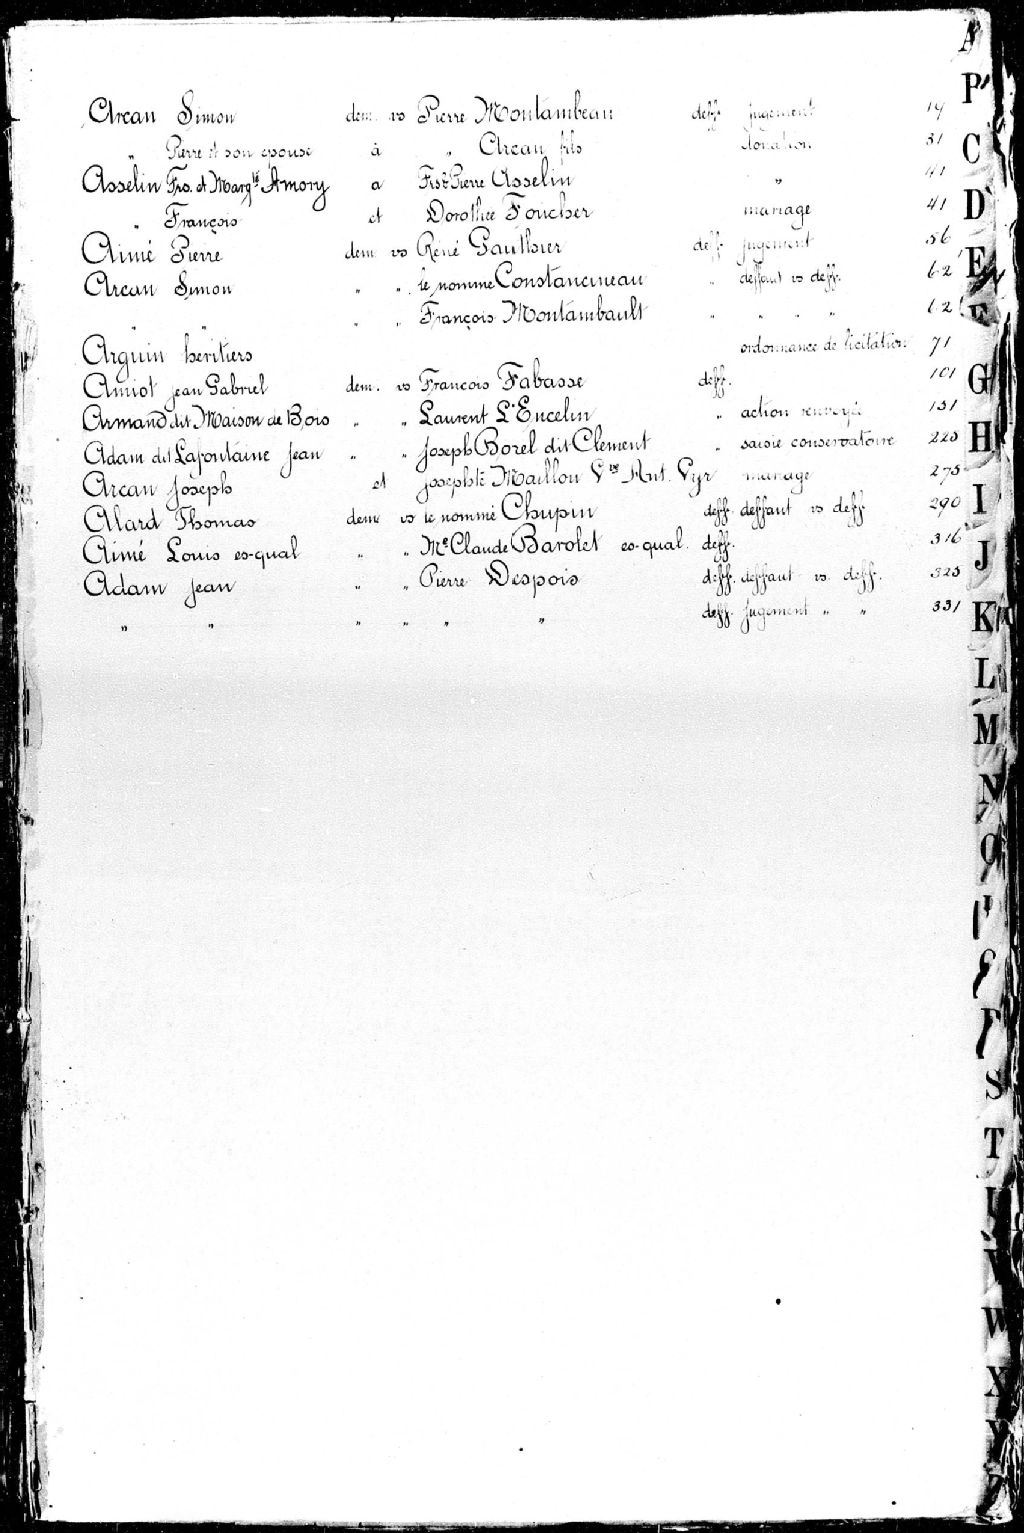 Arcan Simon dem. vs Pierre Montambeau deff. jugement 19
" Pierre et son épouse à " Arcan fils donation 31
Asselin Frs. et Margte Amory a Frs Pierre Asselin " 41
" François et Dorothée Foucher mariage 41
Aimé Pierre dem vs René Gauthier deff. jugement 56
Arcan Simon " " le nommé Constancineau " deffaut vs deff. 62
" " " " François Montambault " " " " 62
Arguin heritiers ordonnance de licitation 71
Amiot Jean Gabriel dem. vs Francois Fabasse deff. 101
Armand dit Maison de Bois " " Laurent L'Encelin " action renvoyée 151
Adam dit Lafontaine Jean " " Joseph Borel dit Clement " saisie conservatoire 225
Arcan Joseph et Josephte Maillou Vve Ant. Cyr mariage 275
Alard Thomas dem vs le nommé Chupin deff. deffaut vs deff 290
Aimé Louis es-qual " " Me Claude Barolet es-qual. deff. 316
Adam Jean " " Pierre Despois deff. deffaut vs. deff. 325
" " " " " " deff. jugement " " 331
A
C
D
E
F
G
H
I
J
K
L
M
N
O
S
T
V
W
X
Y